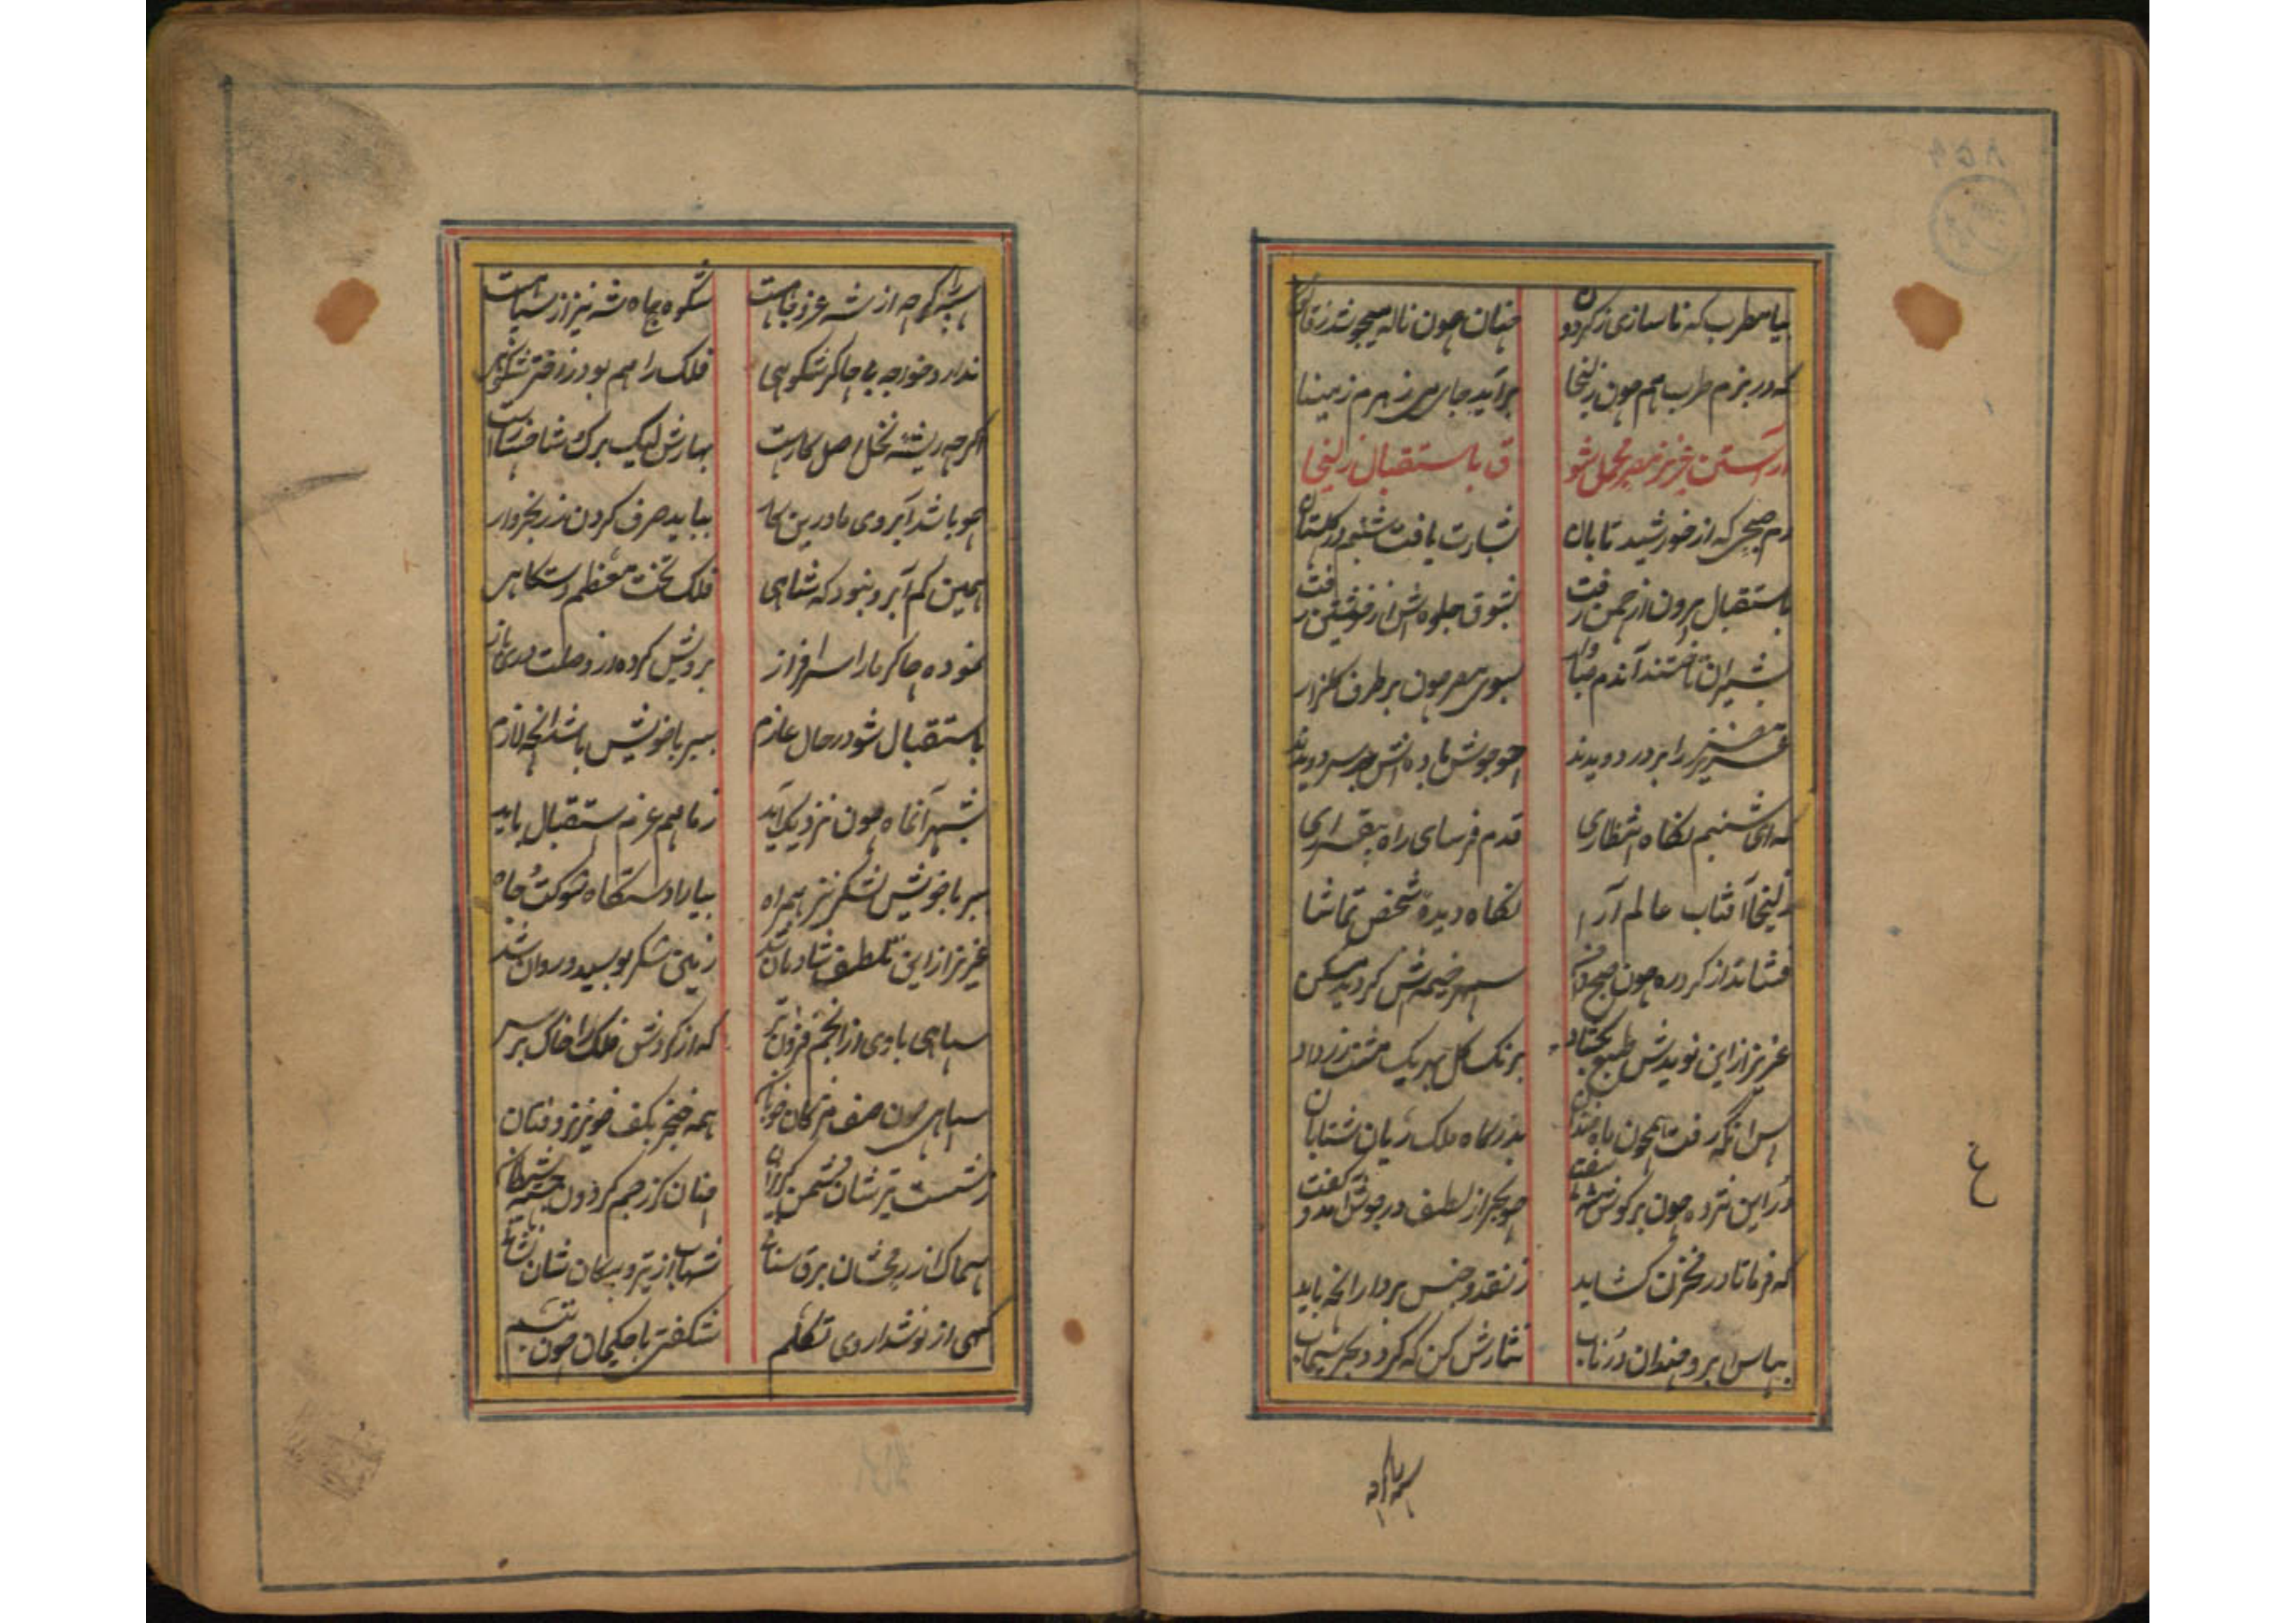 بیا مطرب که ناسازی ز گردون چنان چون ناله پیچو شد ز قانون
که در بزم طرب هم چون زلیخا برآید جای می زهرم ز مینا
آراستن عزیز مصر محمل شوق باستقبال زلیخا
دم صبحی که از خورشید تابان بشارت یافت شبنم در گلستان
باستقبال برون از چمن رفت بشوق جلوه اش از خویشتن رفت
بشیران تاختند آندم صبا وار بسوی مصر چون بر طرف گلزار
عزیز مصر را بر در دویدند چو جوش باده اش بر سر دویدند
که ای شبنم نگاه انتظاری قدم فرسای راه بیقراری
زلیخا آفتاب عالم آرا نگاه دیده شخص تماشا
فشاند از گرد ره چون صبح دامن سپهر خیمه اش گردید مسکن
عزیز از این نویدش طبع بگشاد برنگ گل بهر یک مشت زر داد
پس آنگه رفت همچون ماه بدرگاه ملک ریان شتابان
در این مژده چون بر گوش شه سفت چو بحر از لطف در جوش آمد و گفت
که فرما تا در مخزن گشاید ز نقد و جنس بردار آنچه باید
بپاس آبرو چندان در ناب نثارش کن که گردد بحر سیماب
سپه را
سپه را گرچه از شه عز و جاهست شکوه جاه شه نیز از سپاهست
ندارد خواجه بی چاکر شکوهی فلک را هم بود ز اختر شکوهی
اگرچه ریشه نخل اصل کارست بهارش لیک برگ شاخسارست
چو باشد آبروی ما درین کار بباید صرف کردن زر بخروار
همین کم آبرو نبود که شاهی فلک تخت معظم دستگاهی
نموده چاکر ما را سرافراز برویش کرده از وصلت دری باز
باستقبال شو در حال عازم ببر با خویش باشد آنچه لازم
بشهر آنماه چون نزدیک آید ز ما هم عزم استقبال باید
ببر با خویش لشکر نیز همراه بیارا دستگاه شوکت و جاه
عزیز از این تلطف شادمان شد زمین شکر بوسید و روان شد
سپاهی با وی از انجم فزونتر که از گردش فلک را خاک بر سر
سپاهی چون صف مژگان خوبان همه خنجر بکف خونریز و فتان
ز شست تیرشان دشمن گریزان چنان کز رجم گردون شیطان
سماک از رمحشان برق سنانی شهاب از تیر و پیکان شان نشانی
گهی از نوشداروی تکلم شکفتی با حکیمان چون تبسم